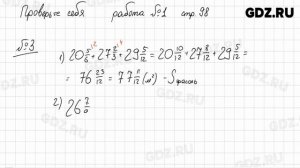 Проверьте себя работа №1 стр. 98
GDZ.RU
№3
1) 20 5/6 + 27 2/3 + 29 5/12 = 20 10/12 + 27 8/12 + 29 5/12 =
= 76 23/12 = 77 11/12 (м²) - S
2) 26
GDZ.RU